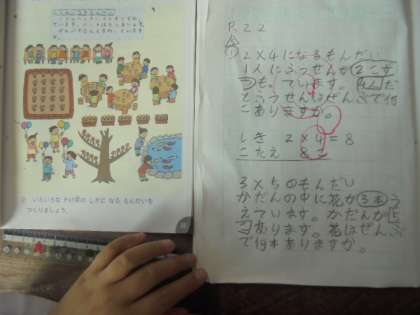 いろいろな かけ算の しきに なる もんだいを
つくりましょう。
P.22
2×4になるもんだい
1人にふうせんが2こず
つもっています。4人だ
とふうせんはぜんぶで何
こありますか。
しき 2×4=8
こたえ 8こ
3×5のもんだい
かだんの中に花が3本う
えています。かだんが5
つあります。花はぜんぶ
で何本ありますか。